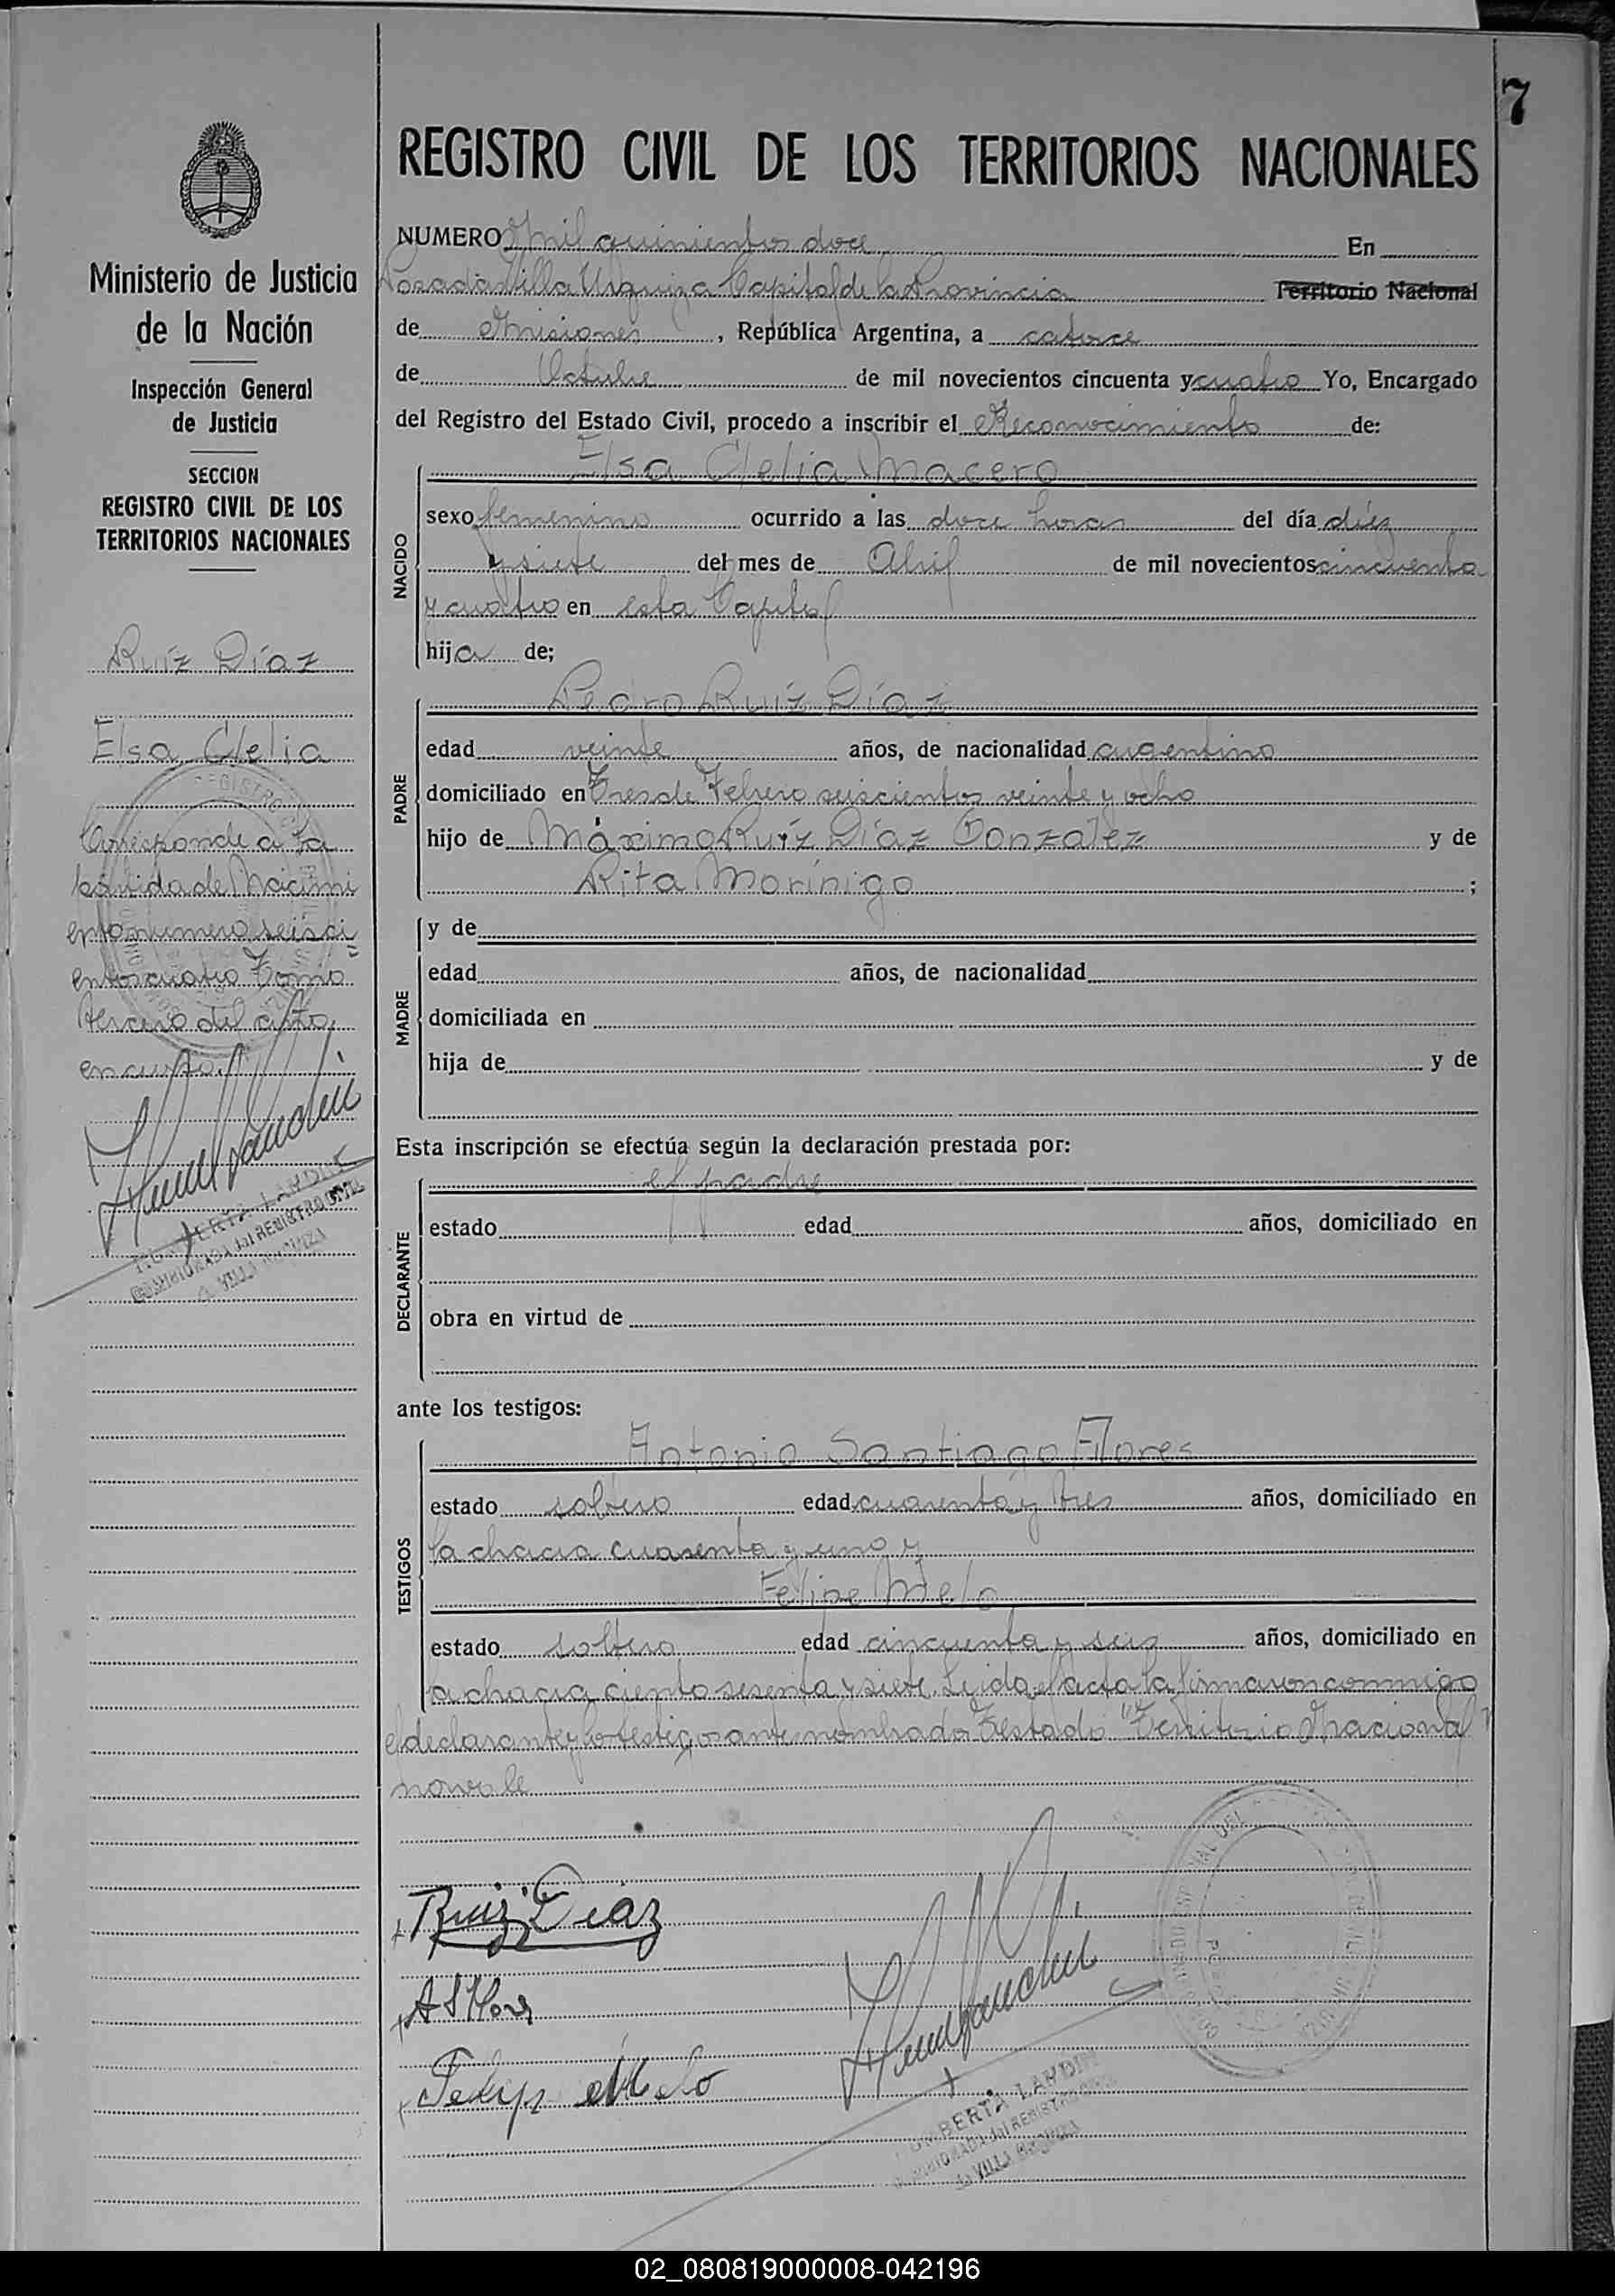 7
REGISTRO CIVIL DE LOS TERRITORIOS NACIONALES
Ministerio de Justicia
de la Nación
Inspección General
de Justicia
SECCION
REGISTRO CIVIL DE LOS
TERRITORIOS NACIONALES
Ruíz Díaz
Elsa Clelia
Corresponde a la
partida de Nacimi
ento numero seisci
entos cuatro Tomo
tercero del año
en curso.
COMISIONADA del REGISTRO CIVIL
NUMERO Mil quinientos doce En
Posadas Villa Urquiza Capital de la Provincia Territorio Nacional
de Misiones, República Argentina, a catorce
de Octubre de mil novecientos cincuenta y cuatro Yo, Encargado
del Registro del Estado Civil, procedo a inscribir el Reconocimiento de:
NACIDO
Elsa Clelia Macero
sexo femenino ocurrido a las doce horas del día diez
y siete del mes de Abril de mil novecientos cincuenta
y cuatro en esta Capital
hija de;
PADRE
Pedro Ruíz Díaz
edad veinte años, de nacionalidad argentino
domiciliado en Tres de Febrero seiscientos veinte y ocho
hijo de Máximo Ruíz Díaz Gonzalez y de
Rita Morínigo ;
MADRE
y de
edad años, de nacionalidad
domiciliada en
hija de y de
Esta inscripción se efectúa según la declaración prestada por:
DECLARANTE
el padre
estado edad años, domiciliado en
obra en virtud de
ante los testigos:
TESTIGOS
Antonio Santiago Flores
estado soltero edad cuarenta y tres años, domiciliado en
la chacra cuarenta y uno y
Felipe Melo
estado soltero edad cincuenta y seis años, domiciliado en
la chacra ciento sesenta y siete. Leida el acta la firmaron conmigo
el declarante y los testigos antes nombrados Testado "Territorio Nacional"
no vale
Ruiz Diaz
A S Flores
Felipe Melo
02_080819000008-042196